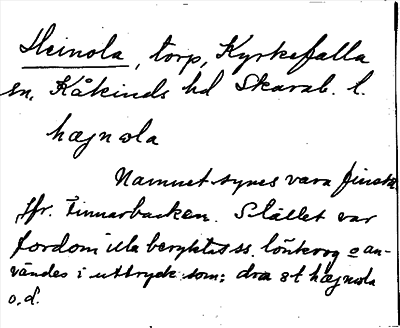 Heinola, torp, Kyrkefalla
sn, Kåkinds hd Skarab. l.
hæjnωla
Namnet synes vara finskt.
Jfr. Finnarbacken. Stället var
fordom illa beryktat ss. lönkrog o an-
vändes i uttryck som: dra åt hæjnωla
o.d.